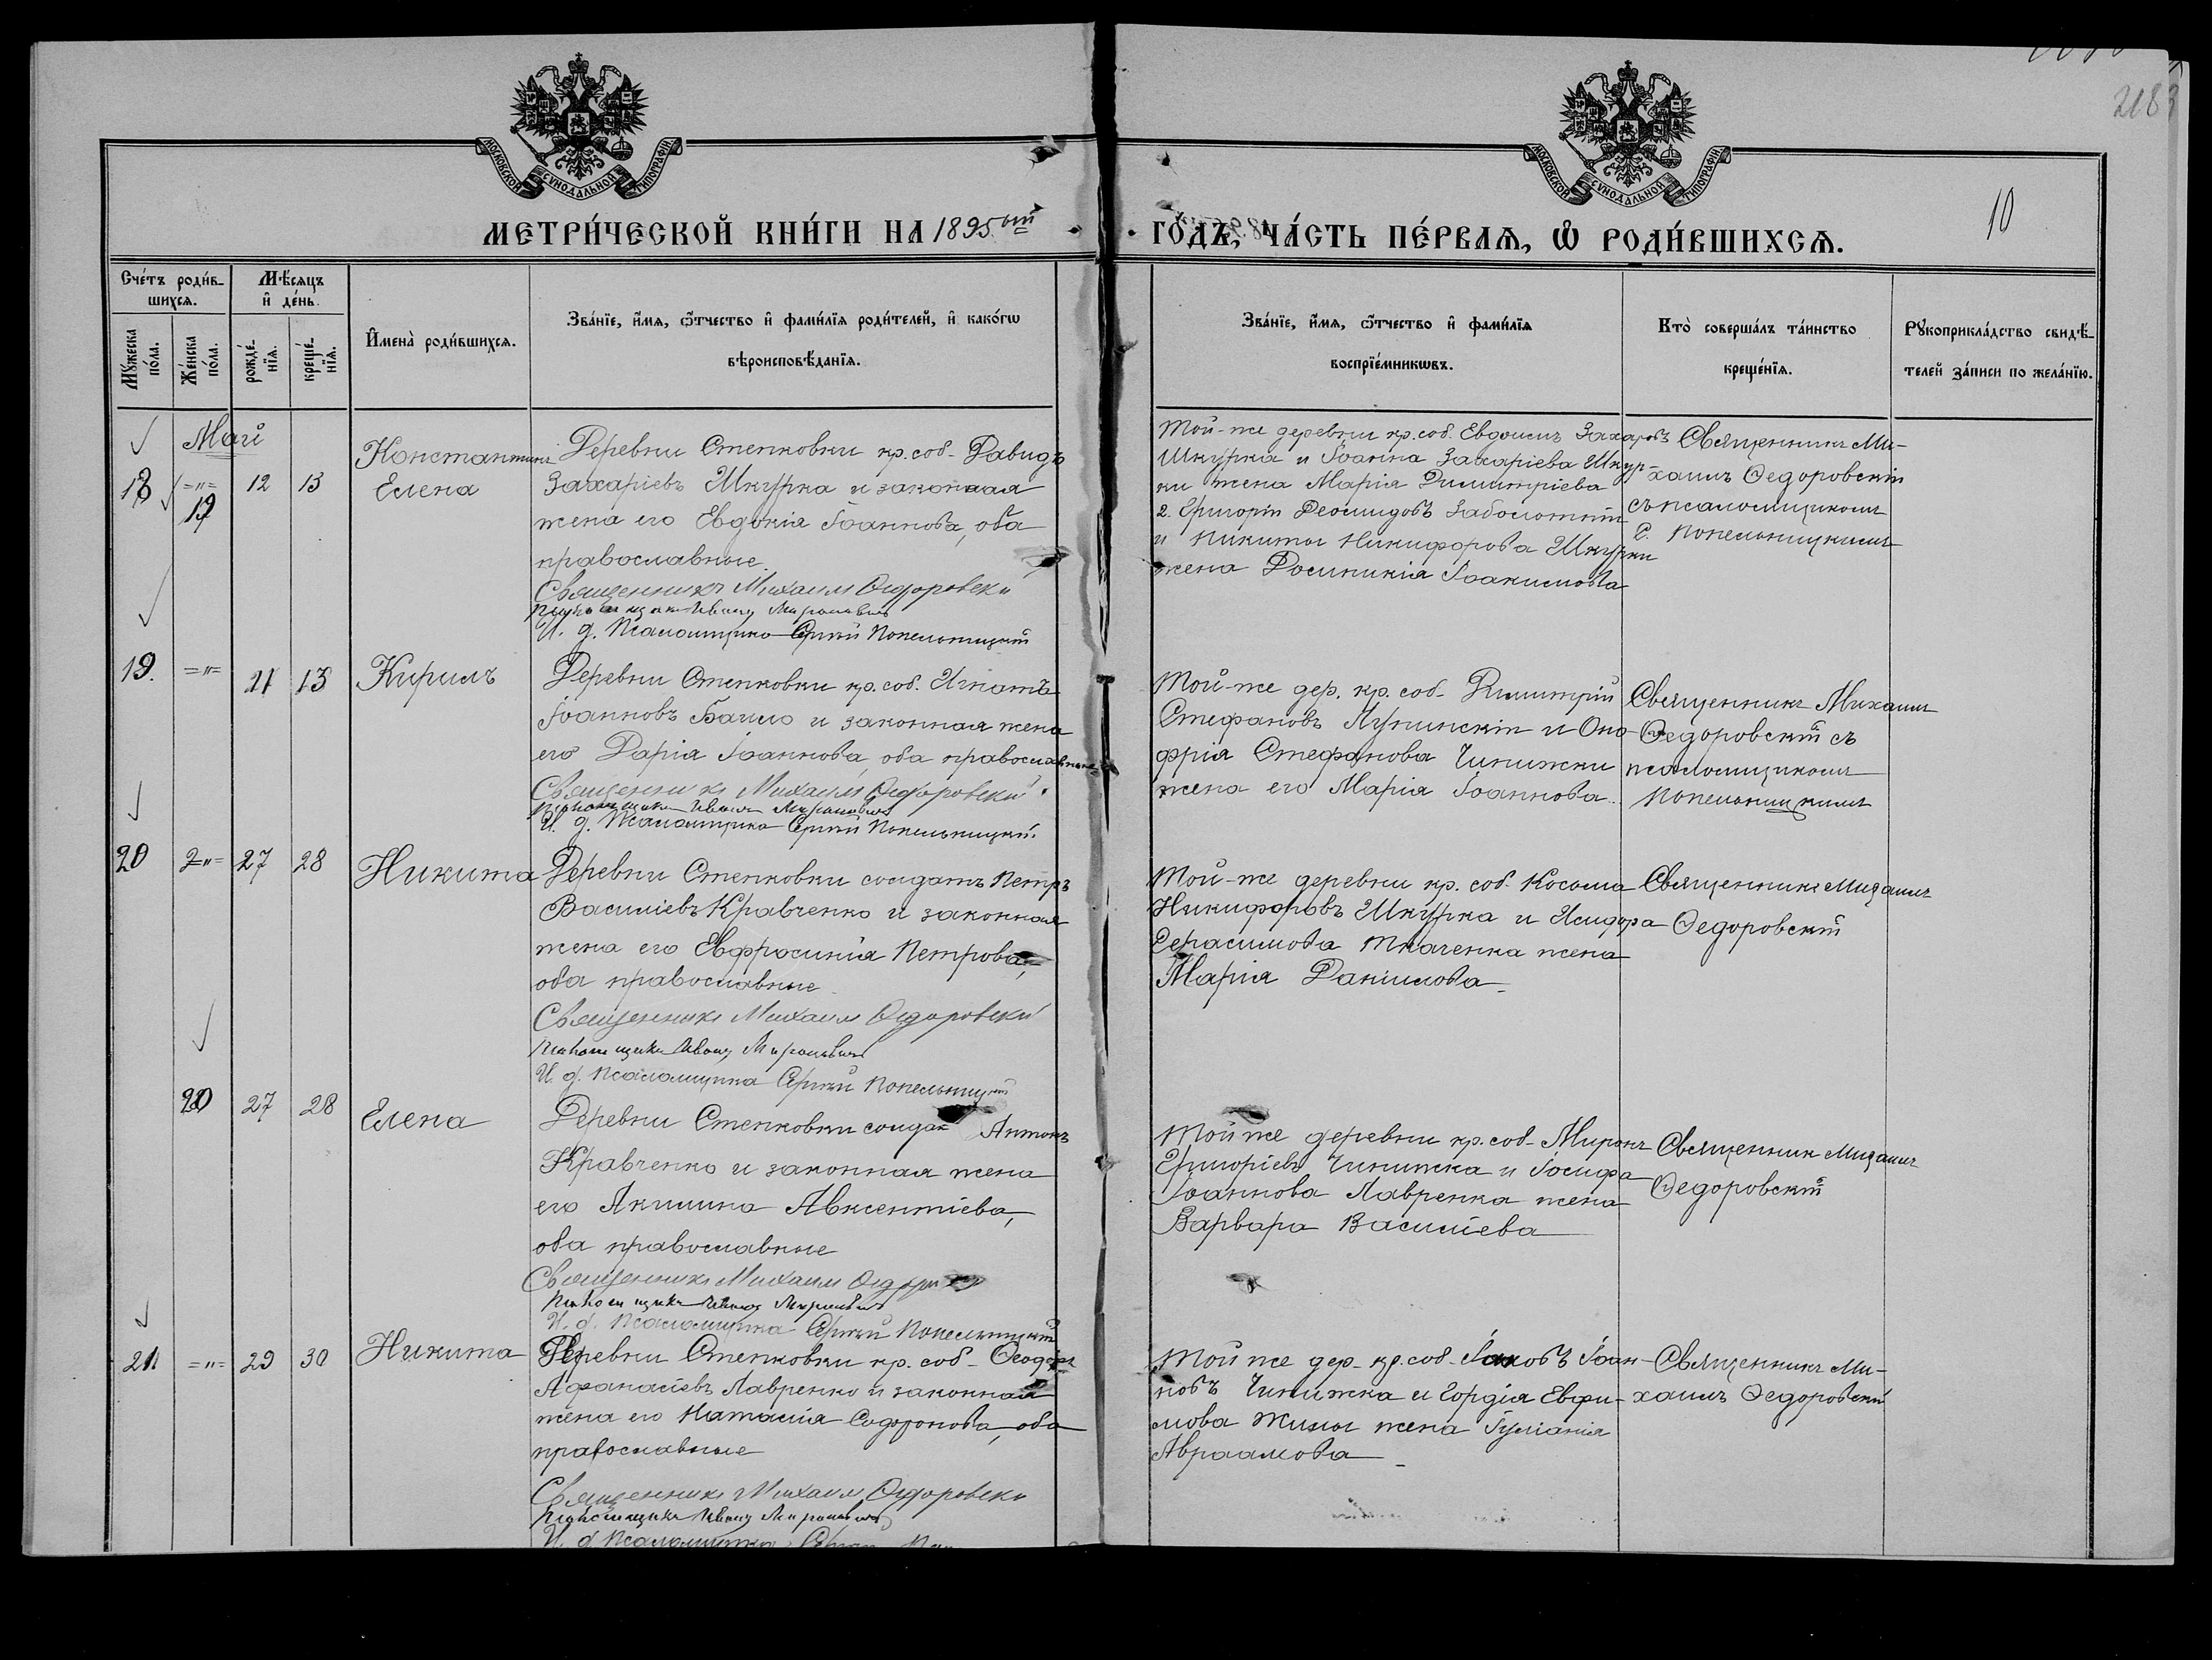 2183
МОСКОВСКОЙ СѴНОДАЛЬНОЙ ТИПОГРАФІИ
МОСКОВСКОЙ СѴНОДАЛЬНОЙ ТИПОГРАФІИ
10
МЕТРИ́ЧЕСКОЙ КНИ́ГИ НА 1895 ый
ГО́ДЪ, ЧА́СТЬ ПЕ́РВАѦ, Ѡ РОДИ́ВШИХСѦ.
Счетъ родив-
шихсѧ.
Мужеска
пола.
Женска
пола.
Мѣсяцъ
и день.
рожде-
нїѧ.
креще-
нїѧ.
Имена родившихсѧ.
Званїе, имѧ, ѿчество и фамилїѧ родителей, и какогѡ
вѣроисповѣданїѧ.
Званїе, имѧ, ѿчество и фамилїѧ
воспрїемникѡвъ.
Кто совершалъ таинство
крещенїѧ.
Рукоприкладство свидѣ-
телей записи по желанїю.
Май
18 =„= 12 13
19
Константинъ
Елена
Деревни Степковки кр. соб. Давидъ
Захаріевъ Шкурка и законная
жена его Евдокія Іоаннова, оба
православные.
Священникъ Михаилъ Ѳедоровскій
Псаломщикъ Иванъ
И. д. Псаломщика Сергій Попельницкій
Той-же деревни кр. соб. Евдокимъ Захаровъ
Шкурка и Іоанна Захаріева Шкур-
ки жена Марія Димитріева
2. Григорій Деомидовъ Заболотній
и Никиты Никифорова Шкурки
жена Домникія Іоакимова
Священникъ Ми-
хаилъ Ѳедоровскій
съ псаломщикомъ
С. Попельницкимъ
19. =„= 11 13
Кирилъ
Деревни Степковки кр. соб. Игнатъ
Іоанновъ Баило и законная жена
его Дарія Іоаннова, оба православные
Священникъ Михаилъ Ѳедоровскій
Псаломщикъ Иванъ
И. д. Псаломщика Сергій Попельницкій.
Той-же дер. кр. соб. Димитрій
Стефановъ Лупинскій и Оно-
фрія Стефанова Чижки
жена его Марія Іоаннова.
Священникъ Михаилъ
Ѳедоровскій съ
псаломщикомъ
Попельницкимъ
20 =„= 27 28
Никита
Деревни Степковки солдатъ Петръ
Василіевъ Кравченко и законная
жена его Евфросинія Петрова,
оба православные
Священникъ Михаилъ Ѳедоровскій
Псаломщикъ Иванъ
И. д. Псаломщика Сергій Попельницкій
Той-же деревни кр. соб. Косьма
Никифоровъ Шкурка и Исидора
Герасимова Ткаченка жена
Марія Данилова
Священникъ Михаилъ
Ѳедоровскій
20 27 28
Елена
Деревни Степковки солдат Антонъ
Кравченко и законная жена
его Акилина Авксентіева,
оба православные
Священникъ Михаилъ
Псаломщикъ Иванъ
И. д. Псаломщика Сергій Попельницкій
Той же деревни кр. соб. Миронъ
Григоріевъ Чижка и Іосифа
Іоаннова Лавренка жена
Варвара Василіева
Священник Михаилъ
Ѳедоровскій
21 =„= 29 30
Никита
Деревни Степковки кр. соб. Ѳеодоръ
Афанасіевъ Лавренко и законная
жена его Наталія Софронова, оба
православные
Священникъ Михаилъ Ѳедоровскій
Псаломщикъ Иванъ
И. д. Псаломщика Сергій
Той же дер. кр. соб. Іаковъ Іоан-
новъ Чижка и Гордія Евфи-
мова Жилы жена Іуліанія
Авраамова
Священникъ Ми-
хаилъ Ѳедоровскій